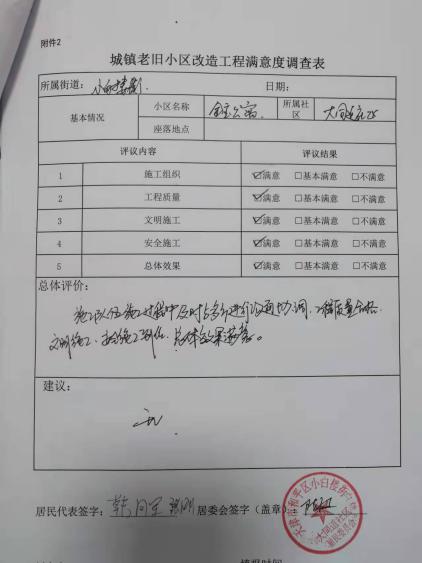 附件2
城镇老旧小区改造工程满意度调查表
所属街道：小白楼街 日期：
基本情况 小区名称 金宝公寓 所属社区 大同道社区
座落地点
评议内容 评议结果
1 施工组织 ☑满意 □基本满意 □不满意
2 工程质量 ☑满意 □基本满意 □不满意
3 文明施工 ☑满意 □基本满意 □不满意
4 安全施工 ☑满意 □基本满意 □不满意
5 总体效果 ☑满意 □基本满意 □不满意
总体评价：
施工队伍施工过程中及时与居民进行沟通协调，工程质量合格，
文明施工，安全施工到位，总体效果满意。
建议：
无
居民代表签字： 居委会签字（盖章）：
天津市和平区小白楼街
大同道社区
居民委员会
填报时间